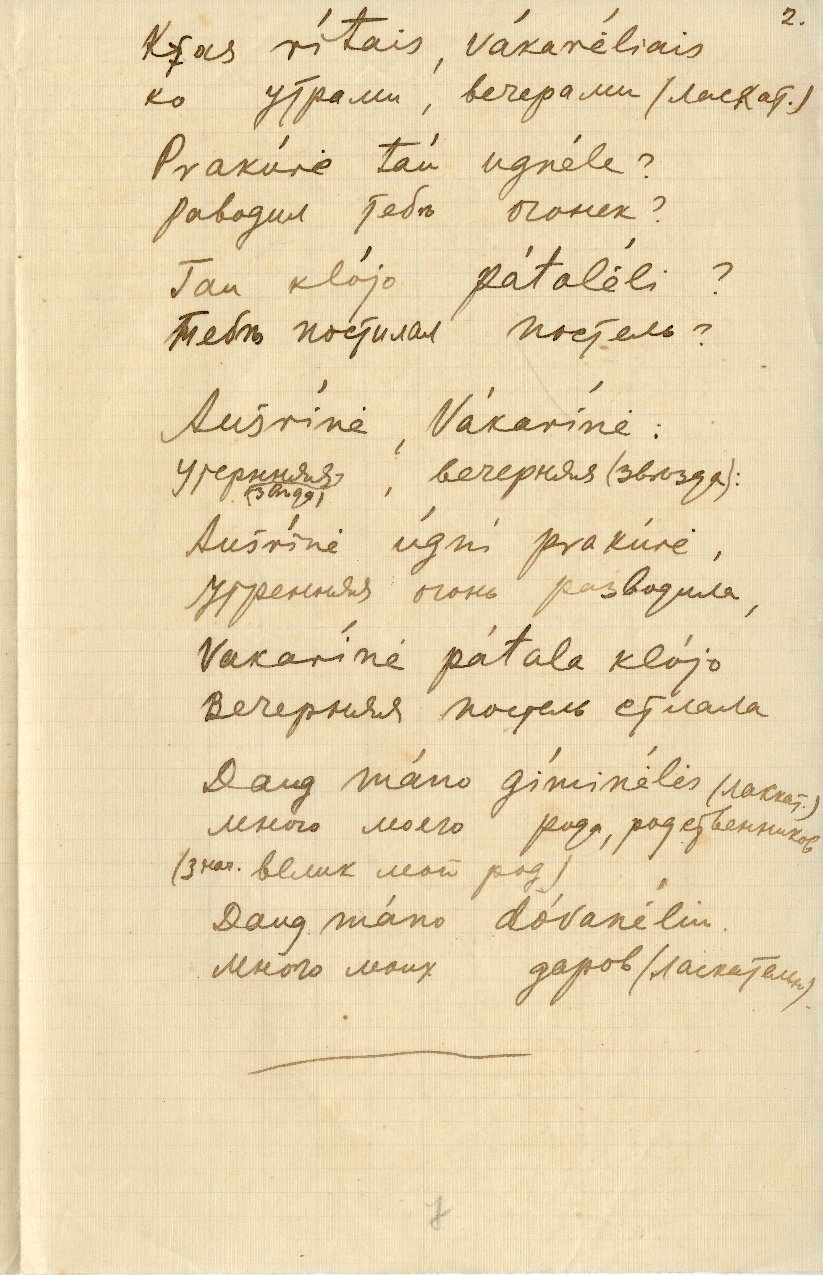 2.
Kas rítais, vákarėliais
ко утрами, вечерами (ласкат.)
Prakúrė táu ugnéle?
Розводил тебѣ огонек?
Tau klójo pátalėli?
Тебѣ постилал постель?
Aušrínė, Vákarínė:
утерняя, вечерняя (звѣзда):
(звѣзда)
Aušrínė úgni prakúrė,
Утренняя огонь розводила,
Vakarínė pátala klójo
Вечерняя постель стлала
Daug máno gíminėlės (ласкат.)
много моего рода, родственников
(знач. велик мой род)
Daug máno dóvanėliu.
Много моих даров (ласкательн.)